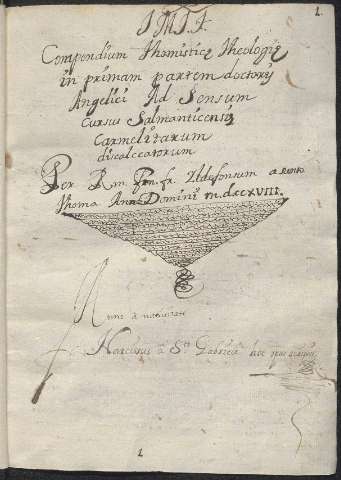 1.
J M J J
Compendium Thomisticę Theologię
in primam partem doctoris
Angelici Ad Sensum
Cursus Salmanticensis
Carmelitarum
discalceatorum
Per Rm. Pm. fr. Ildefonsum a
Thoma Anno Domini m.dccXVIII.
a
Narcisus a Sto Gabriele hoc
1